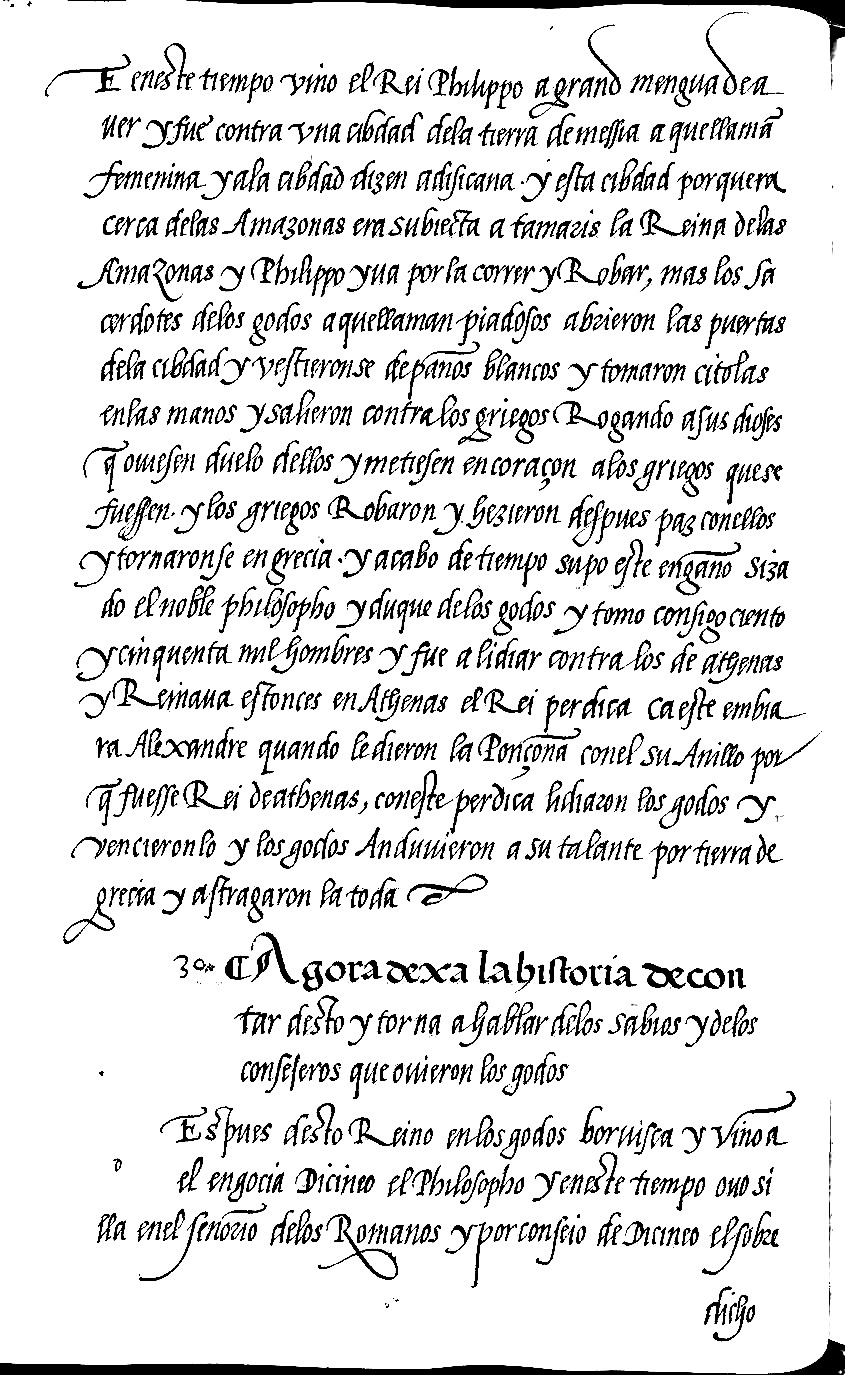 E eneste tiempo vino el Rei Philippo a grand mengua de a
uer y fue contra vna cibdad dela tierra de messia a que llamã
femenina y ala cibdad dizen adisicana · y esta cibdad porquera
cerca delas Amazonas era subiecta a tamaris la Reina delas
Amazonas y Philippo yua por la correr y Robar, mas los sa
cerdotes delos godos aquellaman piadosos abrieron las puertas
dela cibdad y vestieronse de panos blancos y tomaron citolas
enlas manos y salieron contra los griegos Rogando a sus dioses
q̃ ouiesen duelo dellos y metiesen en coraçon alos griegos quese
fuessen · y los griegos Robaron y hezieron despues paz conellos
y tornaronse en grecia · y acabo de tiempo supo este engano Siza
do el noble philosopho y duque delos godos y tomo consigo ciento
y cinquenta mil hombres y fue a lidiar contra los de athenas
y Reinaua estonces en Athenas el Rei perdica ca este embia
ra Alexandre quando le dieron la Ponçoña conel su Anillo por
q̃ fuesse Rei de athenas, coneste perdica lidiaron los godos y
vencieronlo y los godos Anduuieron a su talante por tierra de
grecia y astragaron la toda
30 Agora dexa la historia de con
tar desto y torna a hablar delos sabios y delos
consejeros que ouieron los godos
Espues desto Reino enlos godos boruista y vino a
D
el en gocia Dicineo el Philosopho y eneste tiempo ouo si
lla enel señorio delos Romanos y por conseio de Dicineo el sobre
dicho